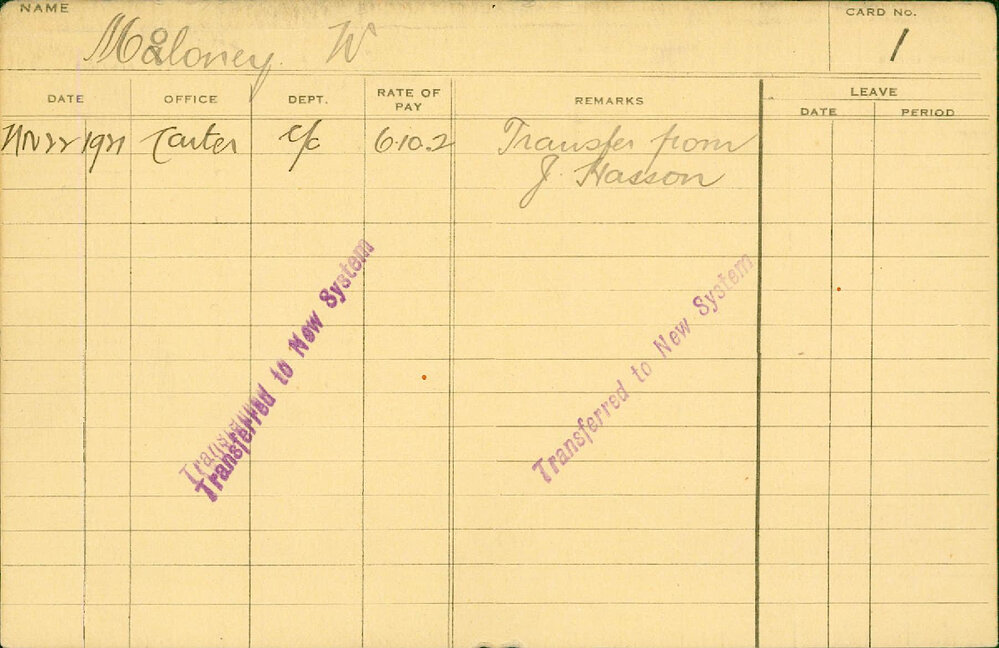 NAME
Maloney W
CARD No.
1
DATE OFFICE DEPT. RATE OF PAY REMARKS LEAVE
DATE PERIOD
22 1921 Carter c/c 6.10.2 Transfer from
J. Hasson
Transferred to New System
Transferred to New System